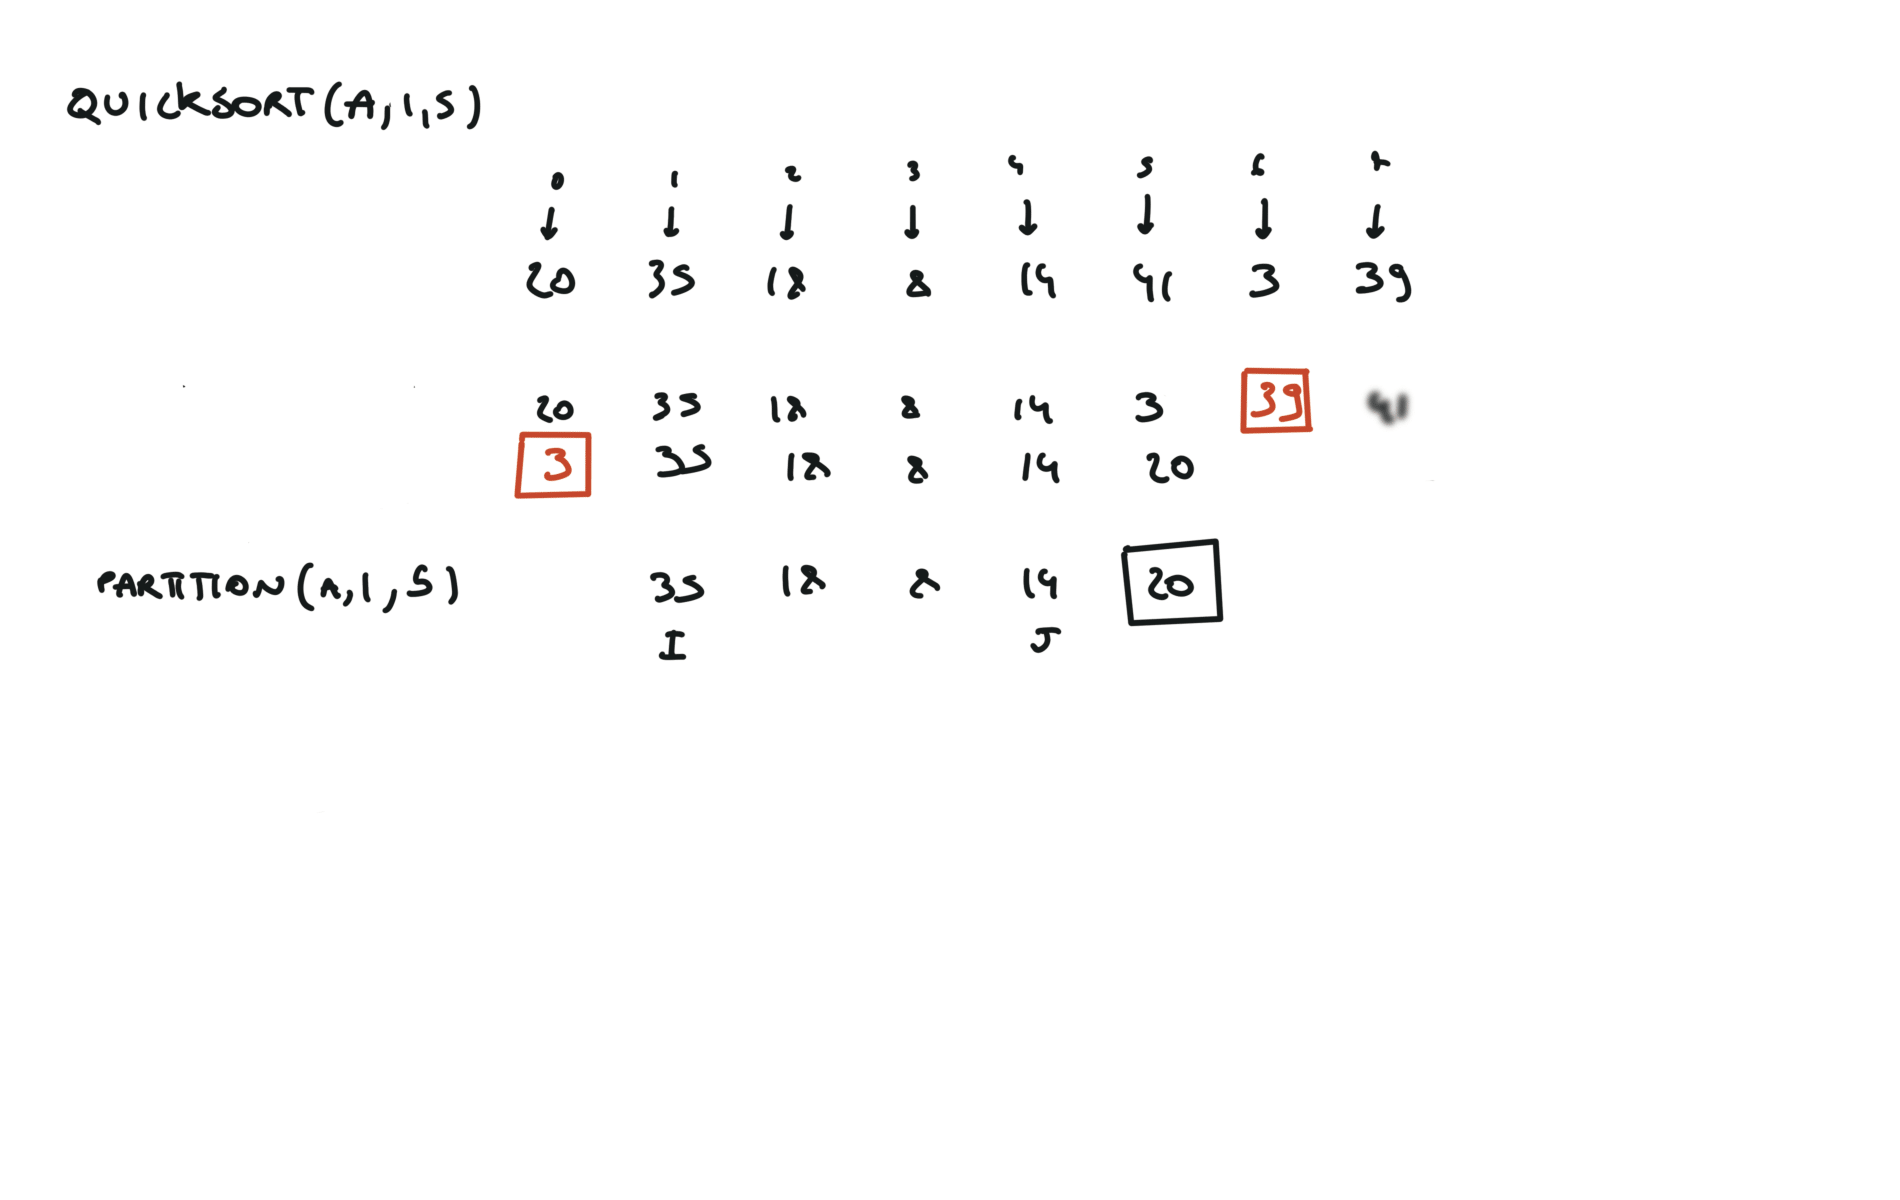 QUICKSORT(A,1,5)
0 1 2 3 4 5 6 7
20 35 18 8 14 41 3 39
20 35 18 8 14 3 39 41
3 35 18 8 14 20
PARTITION(A,1,5) 35 18 8 14 20
I J